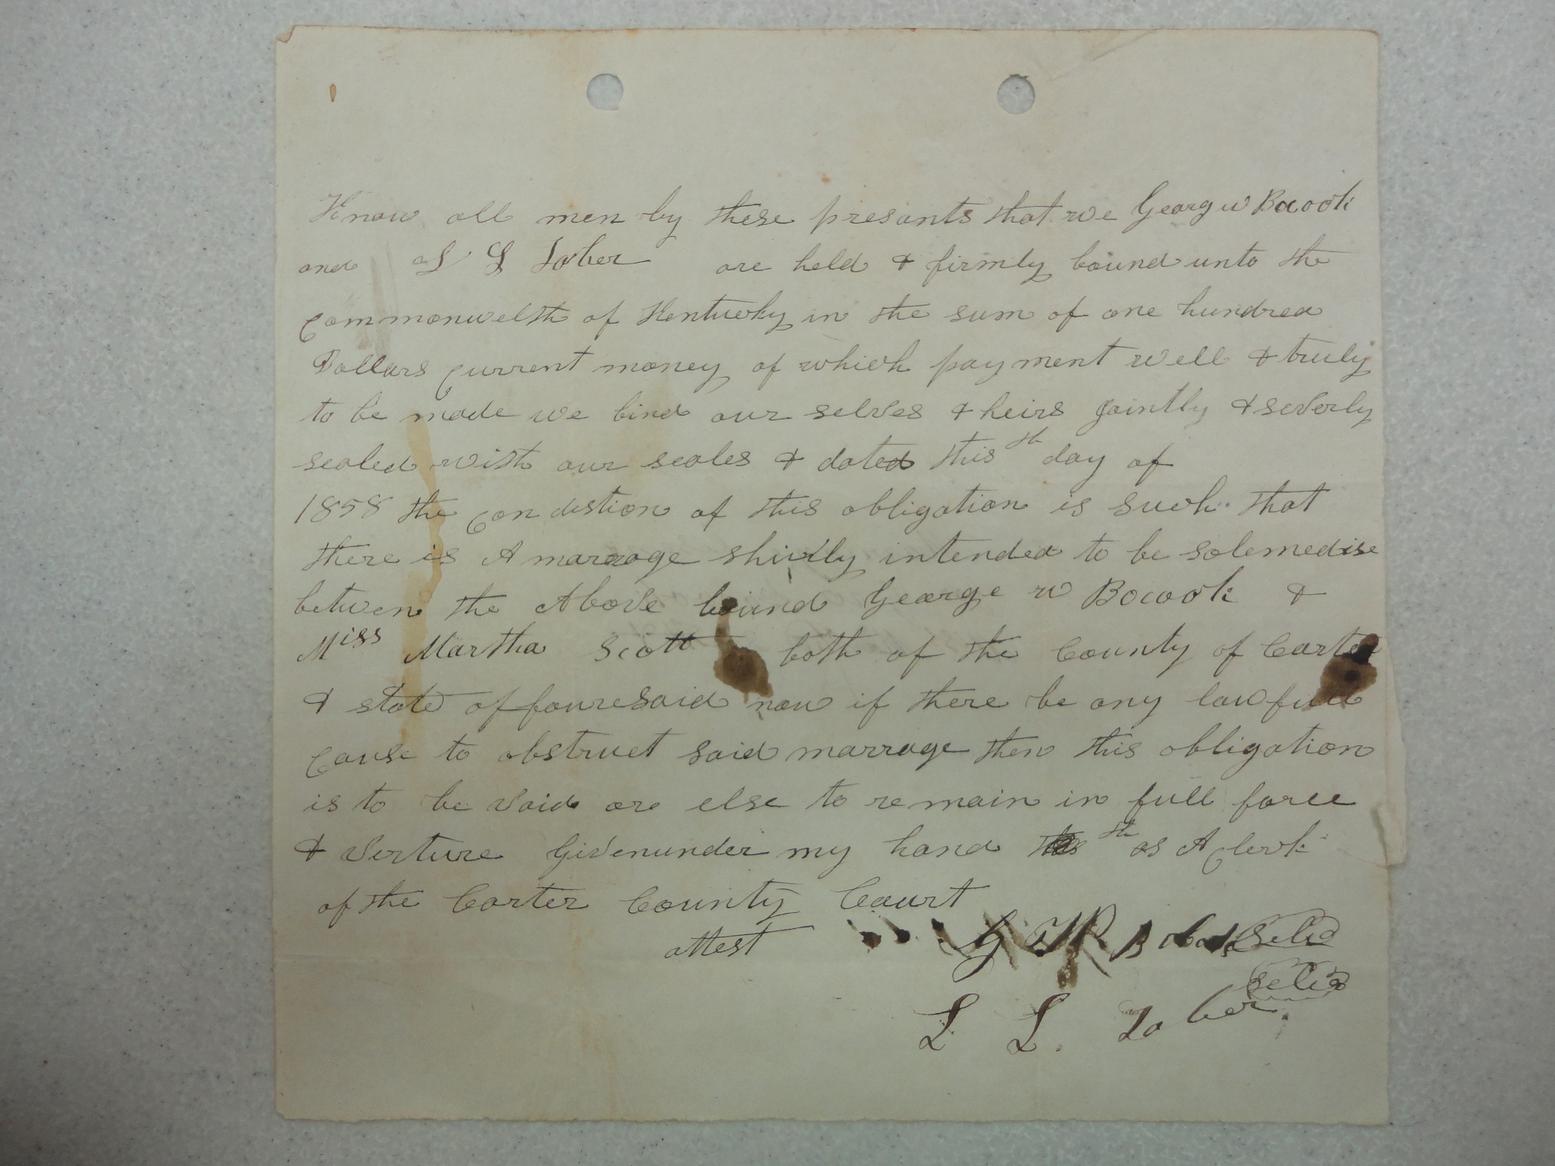 Know all men by these presants that we Georg w Bocook
and L L Tober are held & firmly bound unto the
Commonwelth of Kentucky in the sum of one hundred
Dollars current money of which payment well & truly
to be made we bind our selves & heirs jointly & severly
sealed with our seales & dated this th day of
1858 the condistion of this obligation is such that
there is A marrage shirtly intended to be solemedise
between the Above bound George w Bocook &
Miss Martha Scott both of the County of Carter
& state affouresaid now if there be any lawfull
cause to obstruct said marrage then this obligation
is to be void or else to remain in full force
& verture Given under my hand this th as A clerk
of the Carter County Court
attest G W Bocook Seld
Seld
L L. Tober